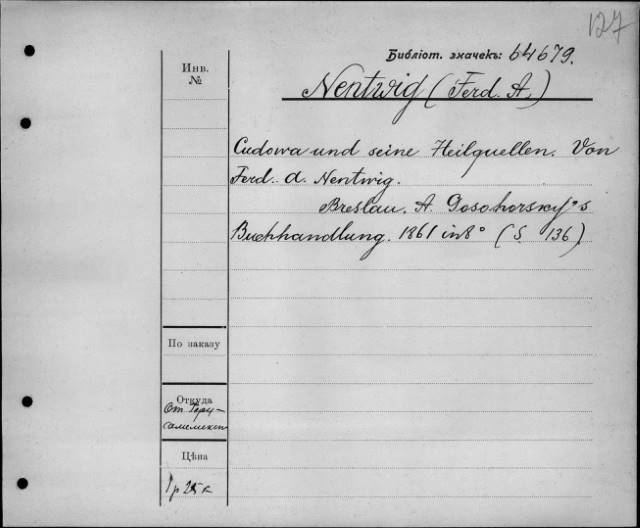 127
Библіот. значекъ: 64679.
Инв.
№
Nentwig (Ferd. A.)
Cudowa und seine Heilquellen. Von
Ferd. A. Nentwig.
Breslau. A. Gosohorsky's
Buchhandlung. 1861 in 8° (S. 136)
По заказу
Откуда
От Геру-
Цѣна
1 р 25 к